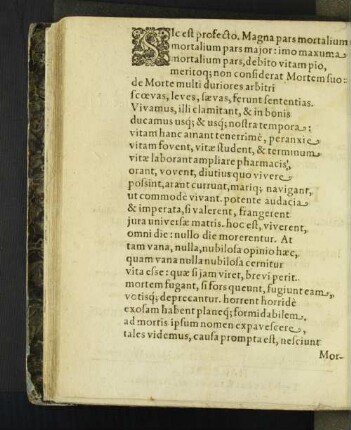 SIc est profecto. Magna pars mortalium
mortalium pars major: imo maxuma
mortalium pars, debito vitam pio,
meritoq; non considerat Mortem suo:
de Morte multi duriores arbitri
scœvas, leves, sævas, ferunt sententias.
Vivamus, illi clamitant, & in bonis
ducamus usq; & usq; nostra tempora;
vitam hanc amant tenerrimè, peranxie
vitam fovent, vitæ student, & terminum
vitæ laborant ampliare pharmacis,
orant, vovent, diutius quo vivere
possint, arant currunt, mariq; navigant,
ut commodè vivant. potente audacia
& imperata, si valerent, frangerent
jura universæ matris. hoc est, viverent,
omni die: nullo die morerentur. At
tam vana, nulla, nubilosa opinio hæc,
quam vana nulla nubilosa cernitur
vita esse: quæ si jam viret, brevi perit.
mortem fugant, si fors queunt, fugiunt eam,
votisq; deprecantur. horrent horridè
exosam habent planeq; formidabilem,
ad mortis ipsum nomen expavescere,
tales videmus, causa prompta est, nesciunt
Mor-